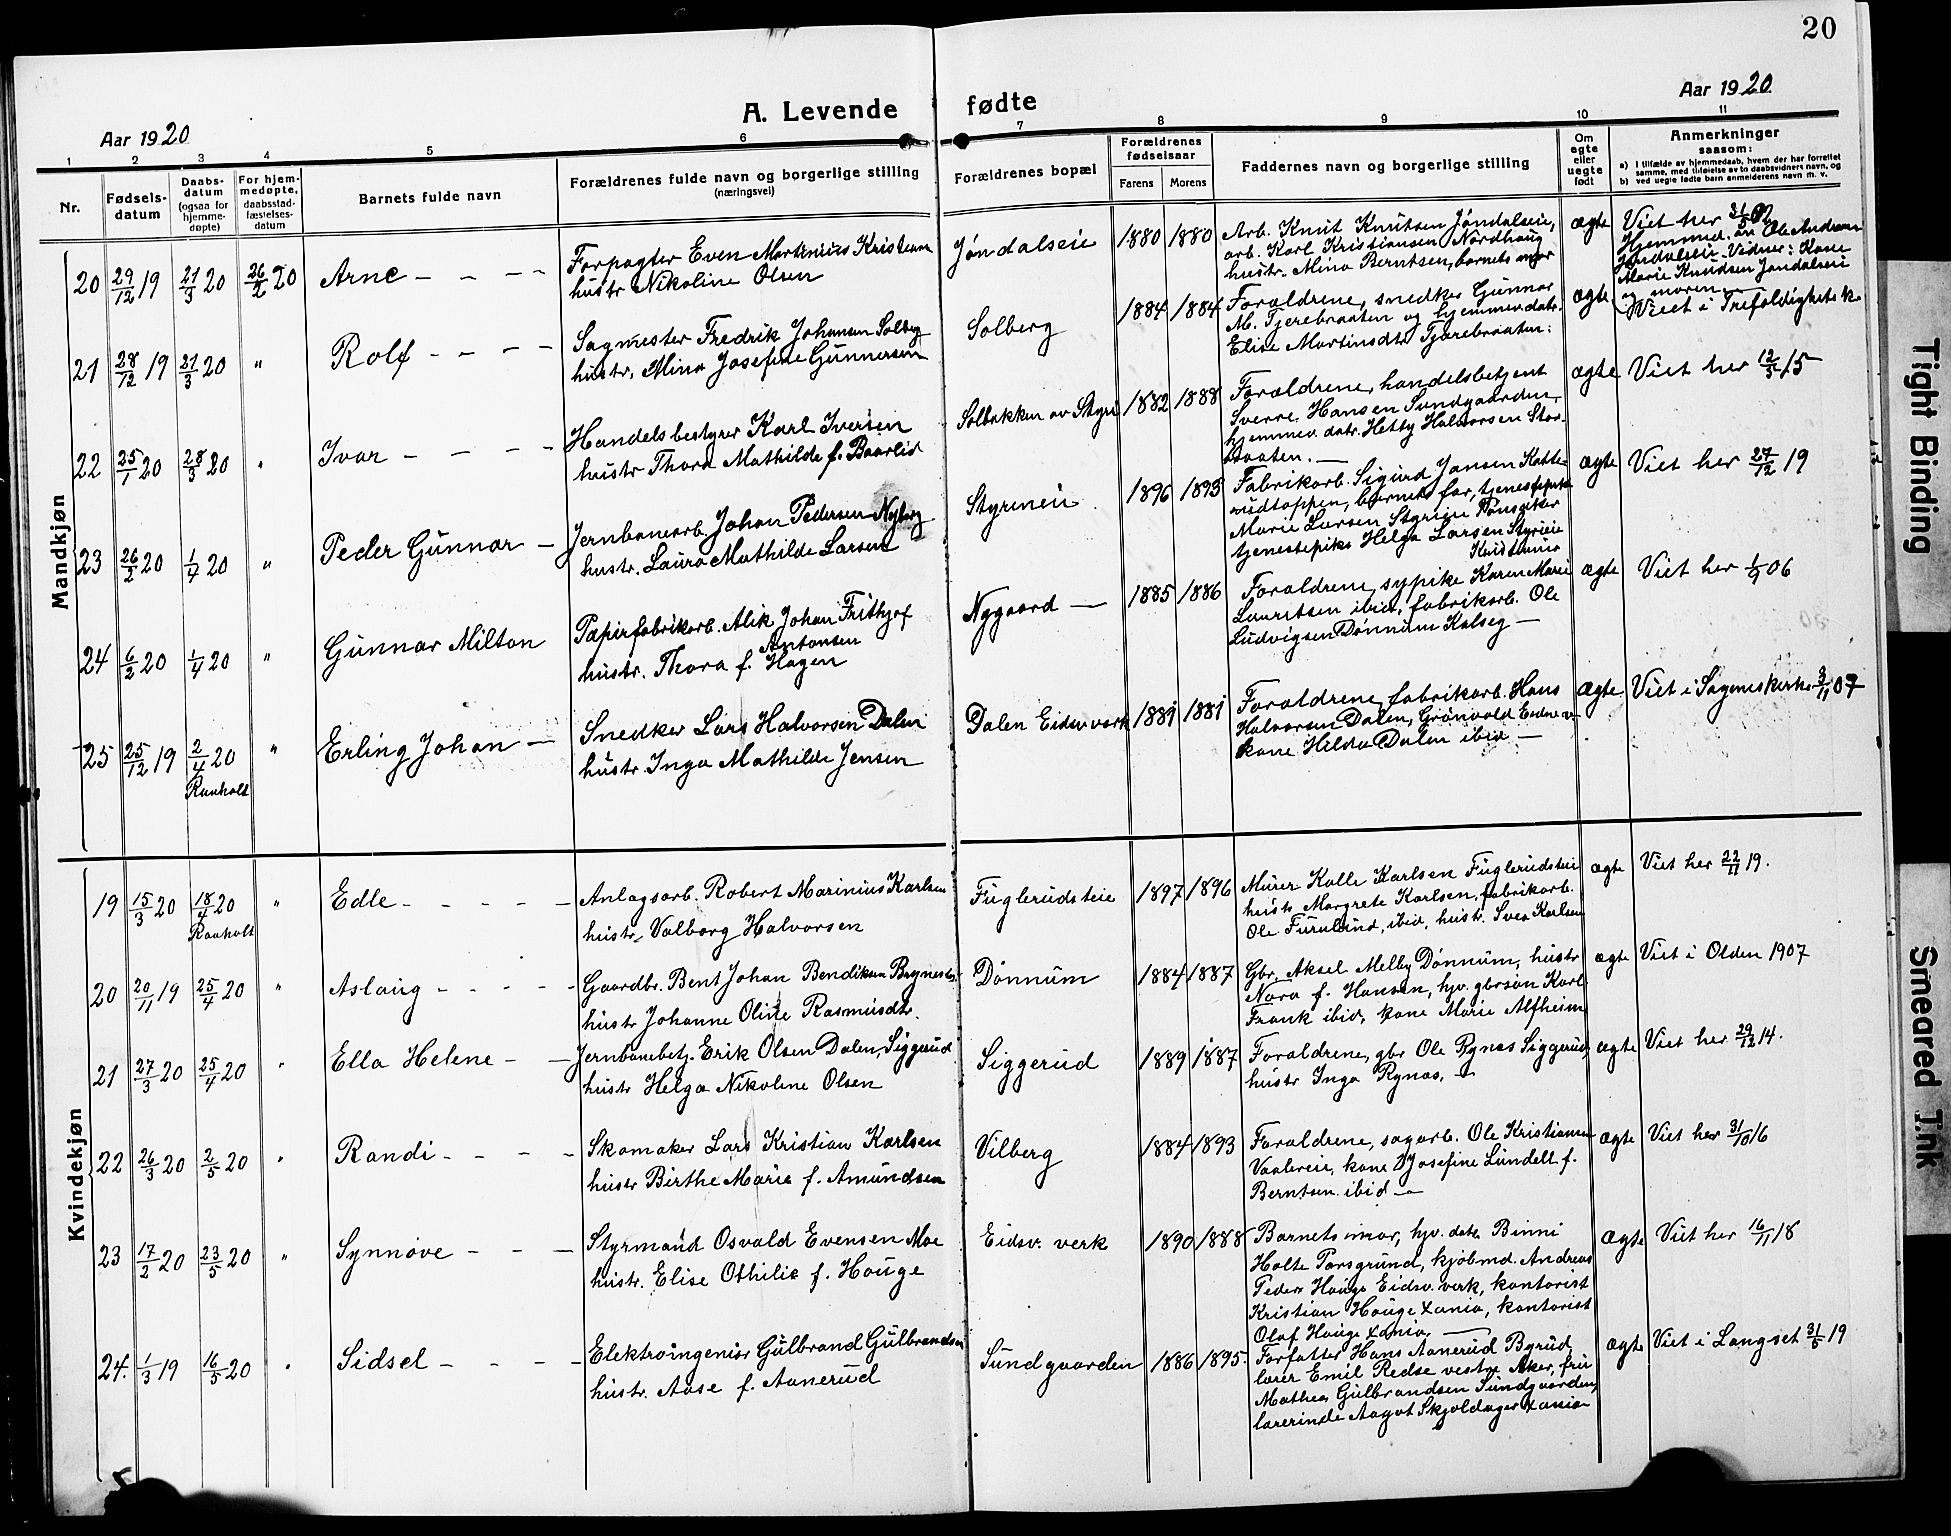 20
Aar 1920
A. Levende
fødte
Aar 1920
1 2 3 4 5 6 7 8 9 10 11
Nr.
Fødsels-
datum
Daabs-
datum
(ogsaa for
hjemme-
døpte)
For hjem-
medøpte,
daabsstad-
fæstelses-
datum
Barnets fulde navn
Forældrenes fulde navn og borgerlige stilling
(næringsvei)
Forældrenes bopæl
Forældrenes
fødselsaar
Farens
Morens
Faddernes navn og borgerlige stilling
Om
egte
eller
uegte
født
Anmerkninger
saasom:
a) I tilfælde av hjemmedaab, hvem der har forrettet
samme, med tilføielse av to daabsvidners navn, og
b) ved uegte fødte barn anmelderens navn m. v.
Mandkjøn
20 29/12 19 21/3 20 26/2 20 Arne - - - -
Forpagter Even Martinius Kristians
hustr Nikoline Olsen
Jøndalseie 1880 1880
Arb. Knut Knutsen Jøndalseie,
arb. Karl Kristiansen Nordhaug
hustr. Mina Berntsen, barnets mor
ægte
Viet her
Hjemmed. av Ole Andersen
Jøndalseie. Vidner: Kone
Marie Knudsen Jøndalseie
og moren
21 28/12 19 21/3 20 " Rolf - - - -
Sagmester Fredrik Johansen Solberg
hustr. Mina Josefine Gunnersen
Solberg 1884 1884
Forældrene, snedker Gunnar
M. Tjærebraaten og hjemmev. datr.
Elise Martinsdtr Tjærebraaten:
ægte
Viet i Trefoldighets k.
22 25/1 20 28/3 20 " Ivar - - - -
Handelsbestyrer Karl Iversen
hustr Thora Mathilde f. Baarlid
Solbakken av Styri 1882 1888
Forældrene, handelsbetjent
Sverre Hansen Sundgaarden,
hjemmev. datr. Hetty Halvorsen Stor-
braaten. —
ægte Viet her 12/3 15
23 26/2 20 1/4 20 " Peder Gunnar —
Jernbanearb. Johan Pedersen Nyberg
hustr. Laura Mathilde Larsen
Styrieneie 1896 1893
Fabrikarb. Sigurd Jansen Katte-
rudtoppen, barnets far, tjenestepike
Marie Larsen Styrieie
tjenestepike Helga Larsen Styrieie
Kristiania
ægte Viet her 27/12 19
24 6/2 20 1/4 20 " Gunnar Milton
Papirfabrikarb. Alik Johan Frithjof
Antonsen
hustr. Thora f. Hagen
Nygaard — 1885 1886
Forældrene, sypike Karen Marie
Lauritsen ibid, fabrikarb. Ole
Ludvigsen Dønnum Kalseg —
ægte Viet her 1/9 06
25 25/12 19 2/4 20 " Erling Johan —
Raaholt
Snedker Lars Halvorsen Dalen
hustr. Inga Mathilde Jensen
Dalen Eidsv. verk 1881 1881
Forældrene, fabrikarb. Hans
Halvorsen Dalen, Grønvold Eidsv. v.
kone Hilda Dalen ibid —
ægte Viet i Sagenes kirke 3/11 07
Kvindekjøn
19 15/3 20 18/4 20 " Edle - - - - -
Raaholt
Anlagsarb. Robert Marinius Karlsen
hustr. Valborg Halvorsen
Fuglerudsteie 1897 1896
Murer Kalle Karlsen Fuglerudsteie
hustr Margrete Karlsen, fabrikarb.
Ole Furulund, ibid, hustr. Svea Karlsen
ægte Viet her 22/11 19.
20 20/11 19 25/4 20 " Aslaug - - - - -
Gaardbr. Bent Johan Bendiksen Brynestad
hustr Johanne Oline Rasmusdtr.
Dønnum 1884 1887
Gbr. Aksel Melby Dønnum, hustr
Nora f. Hansen, hjv. gbrsøn Karl
Frank ibid, kone Marie Alfheim
ægte Viet i Olden 1907
21 27/3 20 25/4 20 " Ella Helene - -
Jernbanebetj. Erik Olsen Dalen, Siggerud
hustr Helga Nikoline Olsen
Siggerud 1889 1887
Forældrene, gbr Ole Rynas Siggerud,
hustr Inga Rynas. —
ægte Viet her 29/12 14.
22 26/3 20 2/5 20 " Randi - - - -
Skomaker Lars Kristian Karlsen
hustr Birthe Marie f. Amundsen
Vilberg 1884 1893
Forældrene, sagarb. Ole Kristiansen
Vaalereie, kone Josefine Lundell f.
Berntsen ibid —
ægte Viet her 31/10 16
23 17/2 20 23/5 20 " Synnøve - - -
Styrmand Osvald Evensen Moe
hustr. Elise Othilie f. Houge
Eidsv. verk 1890 1888
Barnets mor, hjv. datr. Binni
Holte Porsgrund, kjøbmd. Andreas
Peders Houge Eidsv. verk, kontorist
Kristian Houge Xania, kontorist
Olaf Houge Xania. —
ægte Viet her 16/11 18
24. 1/3 19 16/5 20 " Sidsel - - - -
Elektroingeniør Gulbrand Gulbrandsen
hustr. Aase f. Aanerud
Sundgaarden 1886 1895.
Forfatter Hans Aanerud Byrud,
lærer Emil Redse vestre Aker, fru
Mathea Gulbrandsen Sundgaarden,
lærerinde Aagot Skjoldager Xania
ægte Viet i Langset 31/5 19
Tight Binding
Smeared Ink